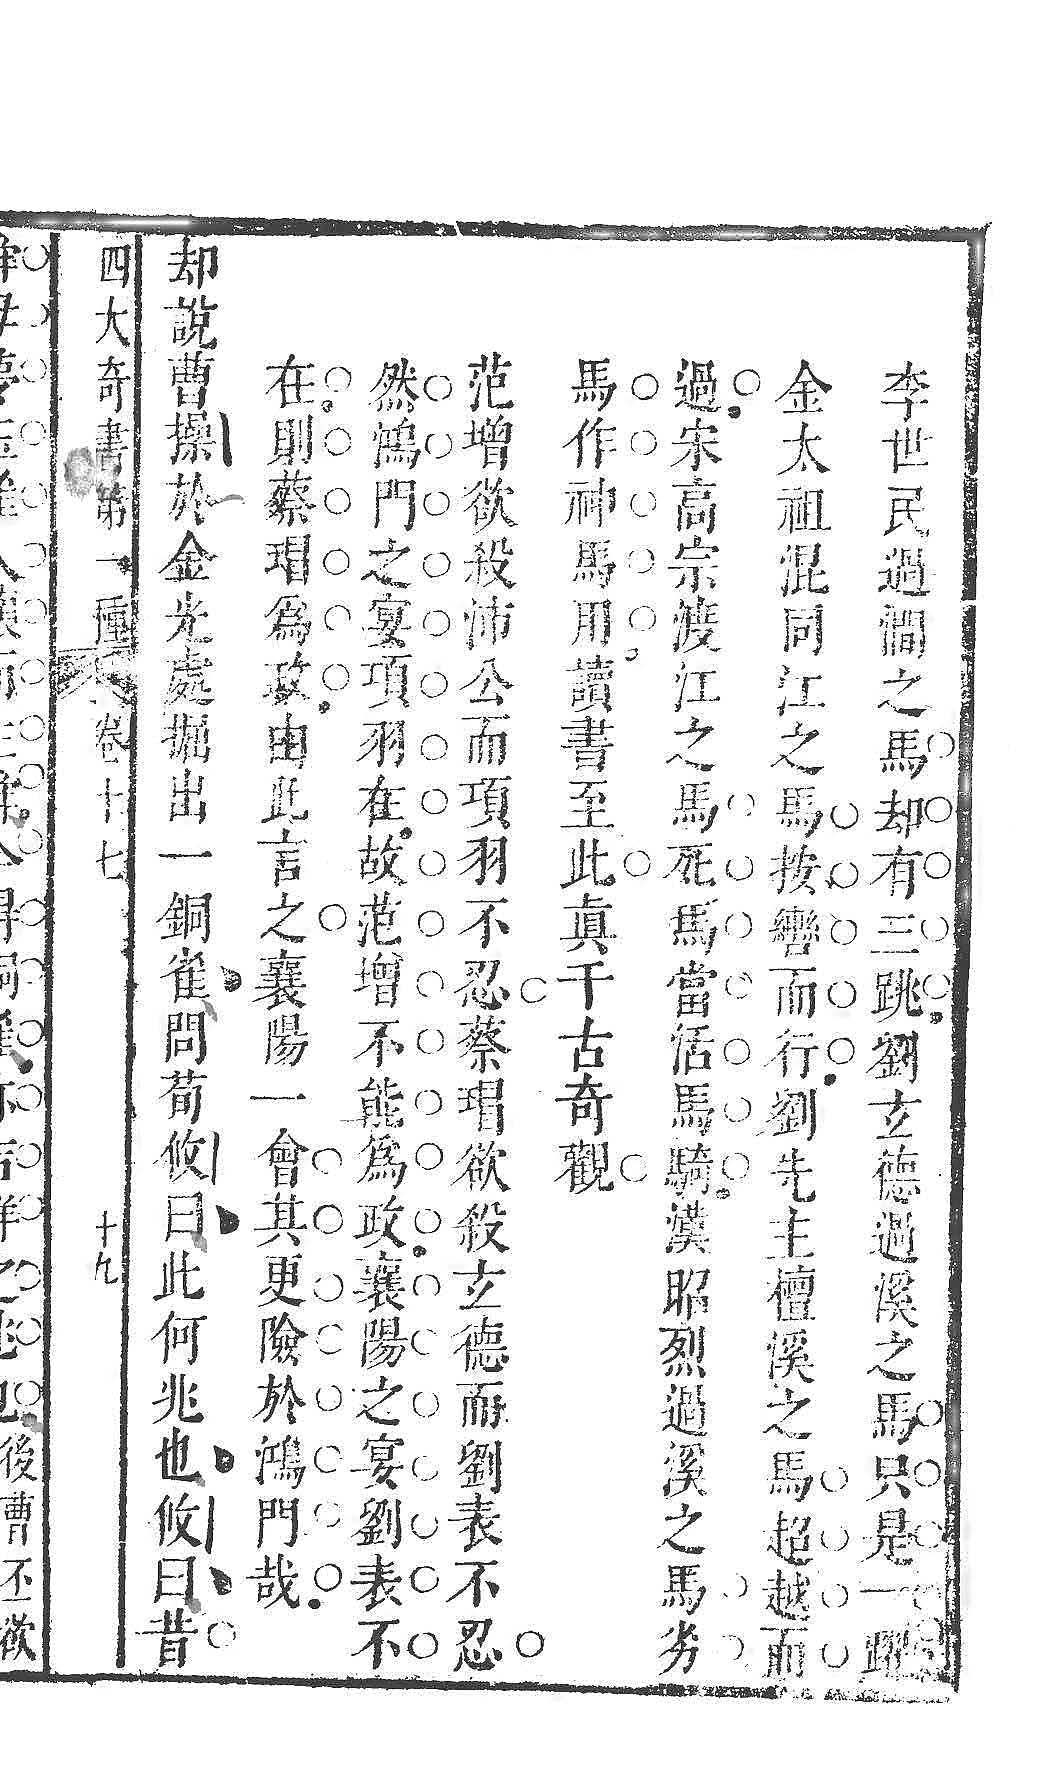 李世民過澗之馬却有三跳劉玄德過溪之馬只是一跳
金太祖混同江之馬按轡而行劉先主檀溪之馬超越而
過宋高宗渡江之馬死馬當活馬騎漢昭烈過溪之馬劣
馬作神馬用讀書至此真千古奇觀
范增欲殺沛公而項羽不忍蔡瑁欲殺玄德而劉表不忍
然鴻門之宴項羽在故范增不能為政襄陽之宴劉表不
在則蔡瑁為政由此言之襄陽一會其更險於鴻門哉
却說曹操於金光處掘出一銅雀問荀攸曰此何兆也攸曰昔
四大奇書第一種 卷十七 十九
後曹丕欲